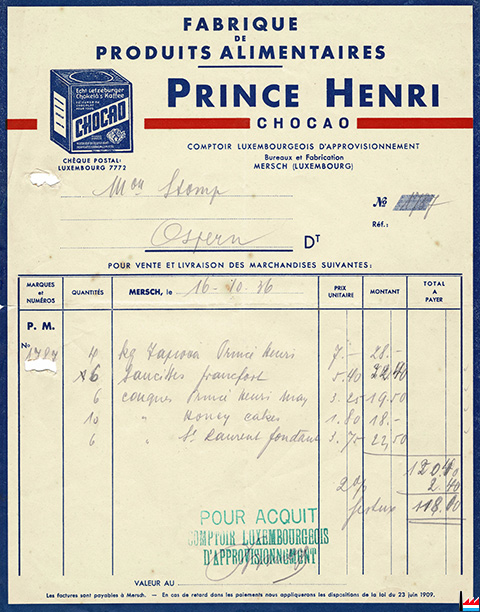 FABRIQUE
DE
PRODUITS ALIMENTAIRES
Echt Letzeburger
Chokela's Kaffee
CHOCAO
PRINCE HENRI
CHOCAO
CHÈQUE POSTAL:
LUXEMBOURG 7772
COMPTOIR LUXEMBOURGEOIS D'APPROVISIONNEMENT
Bureaux et Fabrication
MERSCH (LUXEMBOURG)
Mon Stomp
No
Réf.:
Ospern DT
POUR VENTE ET LIVRAISON DES MARCHANDISES SUIVANTES:
MARQUES et NUMÉROS QUANTITÉS MERSCH, le 16-10-36 PRIX UNITAIRE MONTANT TOTAL A PAYER
P. M.
No 1787 4 kg Tapioca Prince Henri 7.- 28.-
6 Saucisses francfort 5.40 22.40
6 couques Prince Henri 3.25 19.50
10 " Honey cakes 1.80 18.-
6 " St Laurent fondant 3.75 22,50
120.40
2% 2.40
118.00
POUR ACQUIT
COMPTOIR LUXEMBOURGEOIS
D'APPROVISIONNEMENT
VALEUR AU
Les factures sont payables à Mersch. — En cas de retard dans les paiements nous appliquerons les dispositions de la loi du 23 juin 1909.